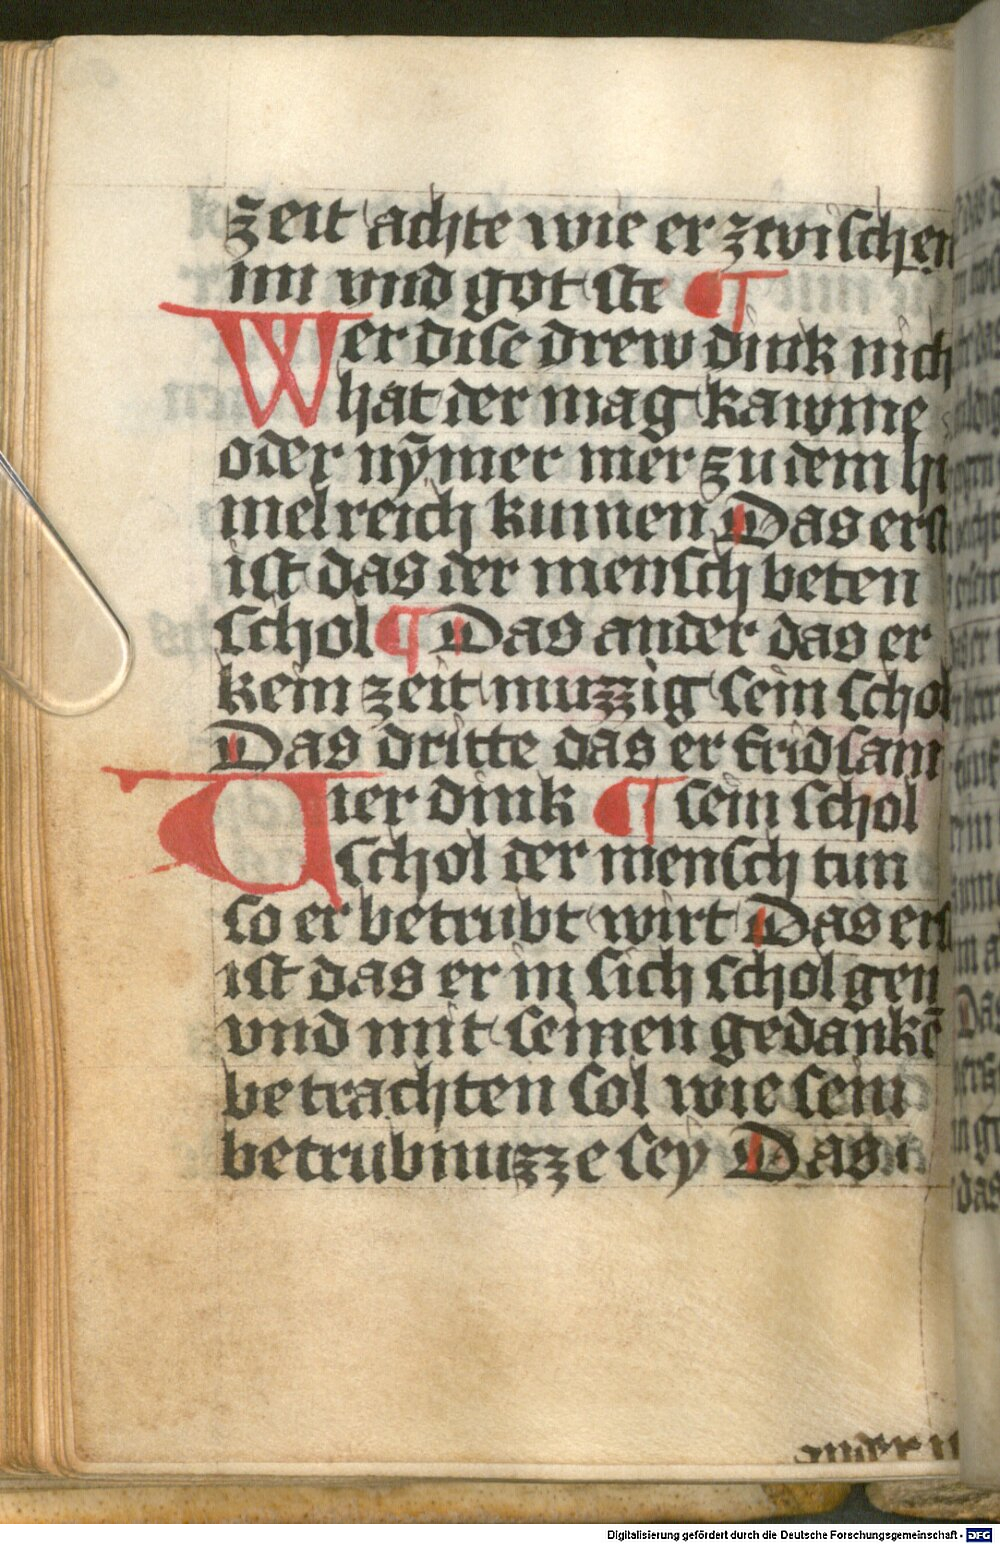 zeit achte wie er zwischen
im vnd got ste ¶
Wer dise drew dink nich
hat der mag kawme
oder nȳmer mer zu dem hi
melreich kumen Das erst
ist das der mensch beten
schol ¶ Das ander das er
kein zeit muzzig sein schol
Das dritte das er fridsam
Uier dink ¶ sein schol
schol der mensch tun
so er betrubt wirt Das erst
ist das er in sich schol gen
vnd mit seinen gedankē
betrachten sol wie sein
betrubnuzze sey Das
ander
Digitalisierung gefördert durch die Deutsche Forschungsgemeinschaft - DFG